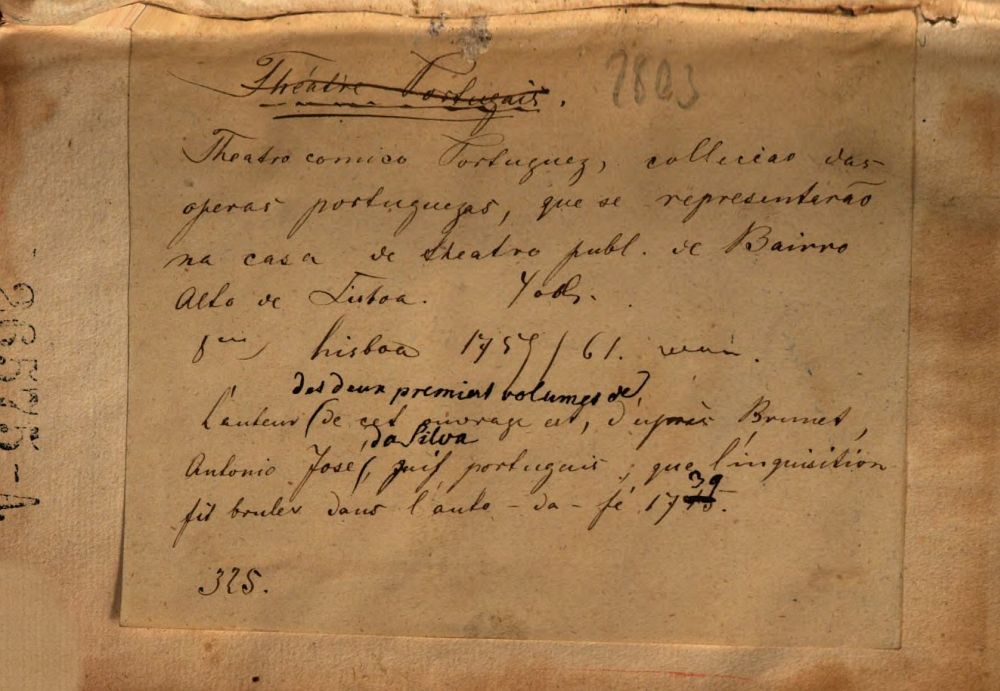 Théatre Portugais.
2803
Theatro comico Portuguez, colleciao das
operas portuguezas, que se representarão
na casa de theatro publ. de Bairro
Alto de Lisboa. 4 vols.
8vo, Lisboa 1759/61.
des deux premiers volumes de
L'auteur (de cet ouvrage est, d'après Brunet,
da Silva
Antonio José (, juif portugais, que l'inquisition
fit bruler dans l'auto-da-fé 1745.
39
325.